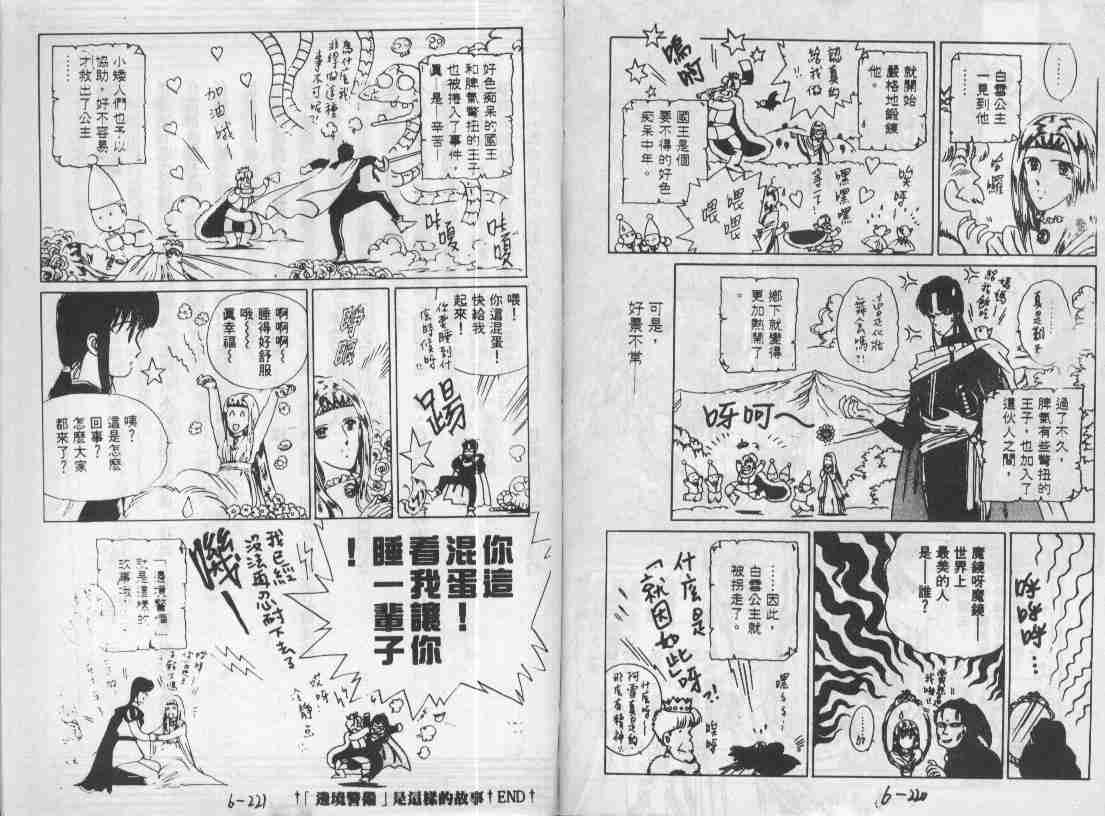 白雪公主
一見到他
……
就開始
嚴格地鍛鍊
他。
認真的
給我做
嗚
啊
國王是個
要不得的好色
痴呆中年。
嘿嘿
嘿
等一下
喂
喂喂
鄉下就變得
更加熱鬧了
。
過了不久，
脾氣有些彆扭的
王子，也加入了
這伙人之間，
呀呵～
可是，
好景不常—
呼
呼呼…
魔鏡呀魔鏡—
世界上
最美的人
是—誰？
……因此，
白雪公主就
被拐走了。
什麼是
「就因如此呀?!
6-220
好色痴呆的國王
和脾氣彆扭的王子
也被捲入了事件，
真—是—辛苦—
為什麼我
非得做這種
事不可呢?!
小矮人們也予以
協助，好不容易
才救出了公主
……
加油哦
哇嘎
哇嘎
喂！
你這混蛋！
快給我
起來！
你要睡到什
麼時候呀
踢
啊啊啊～
睡得好舒服
哦～
真幸福～
咦？
這是怎麼
回事？
怎麼大家
都來了？
你這
混蛋！
看我讓你
睡一輩子
！
我已經
沒法再忍耐下去了
「邊境警備」
就是這樣的
故事
哎呀
冷靜點
6-221
↑「邊境警備」是這樣的故事↑END↑